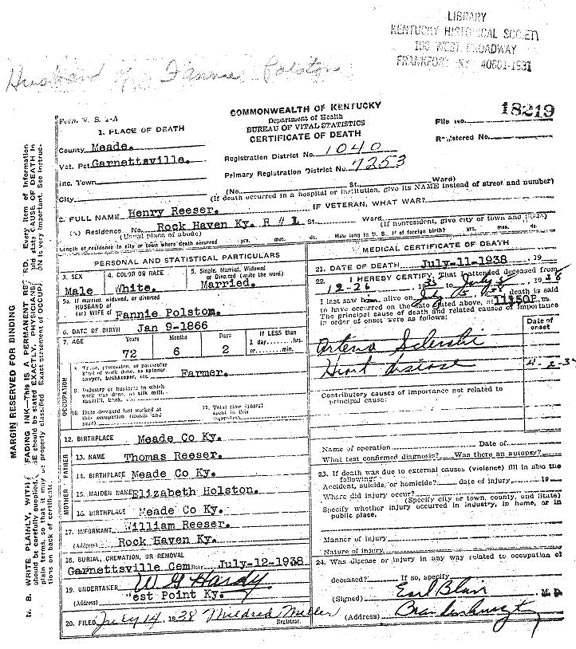 LIBRARY
KENTUCKY HISTORICAL SOCIETY
100 WEST BROADWAY
FRANKFORT KY 40601-1931
Husband of Fannie Polston
COMMONWEALTH OF KENTUCKY
Department of Health
BUREAU OF VITAL STATISTICS
CERTIFICATE OF DEATH
File No. 18219
Registered No.
1. PLACE OF DEATH
County Meade.
Vot. Pct Garnettsville.
Inc. Town
City
Registration District No. 1040
Primary Registration District No. 7253
(No. St. Ward
(If death occurred in a hospital or institution, give its NAME instead of street and number)
2. FULL NAME Henry Reeser. IF VETERAN, WHAT WAR?
(a) Residence No. Rock Haven Ky. R # 1 St. Ward.
(Usual place of abode) (If nonresident, give city or town and
Length of residence in city or town where death occurred yrs. mos. How long in U. S. if of foreign birth? yrs. mos.
PERSONAL AND STATISTICAL PARTICULARS
3. SEX Male
4. COLOR OR RACE White.
5. Single, Married, Widowed or Divorced (write the word) Married.
5a. If married, widowed, or divorced
HUSBAND of
(or) WIFE of Fannie Polston.
6. DATE OF BIRTH Jan 9-1866
7. AGE Years Months Days IF LESS than
72 6 2
1 day hrs.
or min.
OCCUPATION
8. Trade, profession, or particular kind of work done, as spinner sawyer, bookkeeper, etc. Farmer.
9. Industry or business in which work was done, as silk mill, sawmill, bank, etc.
10. Date deceased last worked at this occupation (month and year)
11. Total time (years) spent in this occupation
12. BIRTHPLACE Meade Co Ky.
FATHER
13. NAME Thomas Reeser.
14. BIRTHPLACE Meade Co Ky.
MOTHER
15. MAIDEN NAME Elizabeth Holston.
16. BIRTHPLACE Meade Co Ky.
17. INFORMANT William Reeser.
(Address) Rock Haven Ky.
18. BURIAL, CREMATION, OR REMOVAL
Garnettsville Cem July-12-1938
19. UNDERTAKER W G Hardy
(Address) est Point Ky.
20. FILED July 14 1938 Mildred Miller
Registrar.
MEDICAL CERTIFICATE OF DEATH
21. DATE OF DEATH July-11-1938 , 19
22. I HEREBY CERTIFY, That I attended deceased from
12-26
I last saw alive on death is said
to have occurred on the date stated above, at 1150P m.
The principal cause of death and related causes of importance
in order of onset were as follows:
Date of onset
Heart disease
Contributory causes of importance not related to
principal cause:
Name of operation Date of
What test confirmed diagnosis? Was there an autopsy?
23. If death was due to external causes (violence) fill in also the
following:
Accident, suicide, or homicide? date of injury 19
Where did injury occur?
(Specify city or town, county, and State)
Specify whether injury occurred in industry, in home, or in
public place.
Manner of injury
Nature of injury
24. Was disease or injury in any way related to occupation of
deceased? If so, specify
(Signed) Earl M.D.
(Address)
MARGIN RESERVED FOR BINDING